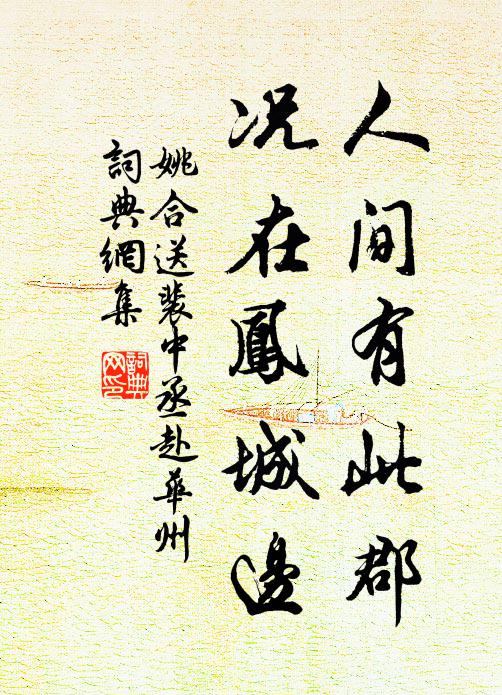 人間有此郡
况在鳳城邊
姚合送裴中丞赴華州
詞典網集
詞典网印